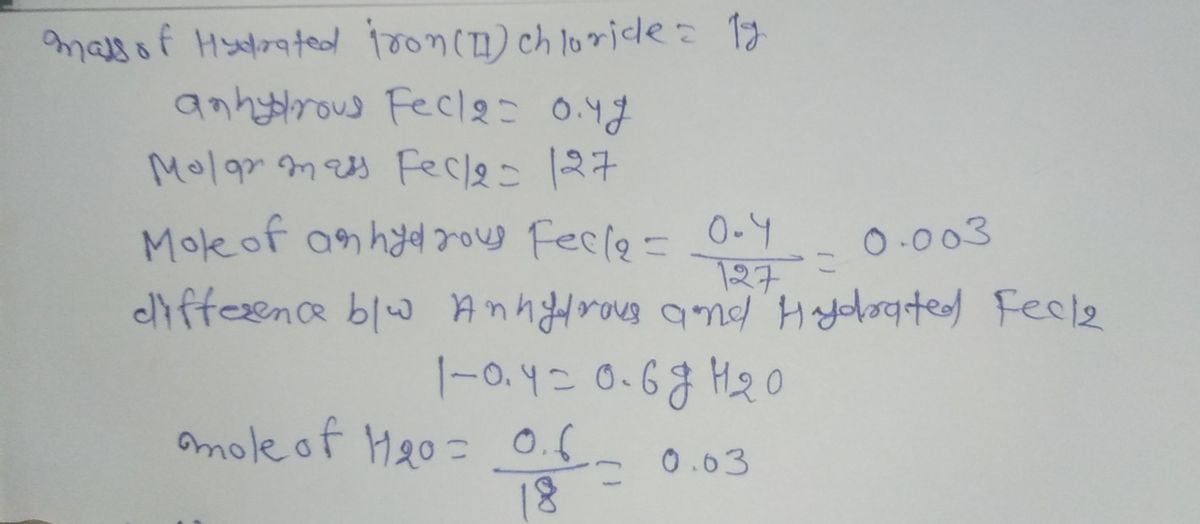 mass of Hydrated iron(II) chloride = 1g
anhydrous FeCl2 = 0.4g
Molar mass FeCl2 = 127
Mole of anhydrous FeCl2 = 0.4/127 = 0.003
difference b/w Anhydrous and Hydrated FeCl2
1-0.4 = 0.6g H2O
mole of H2O = 0.6/18 = 0.03